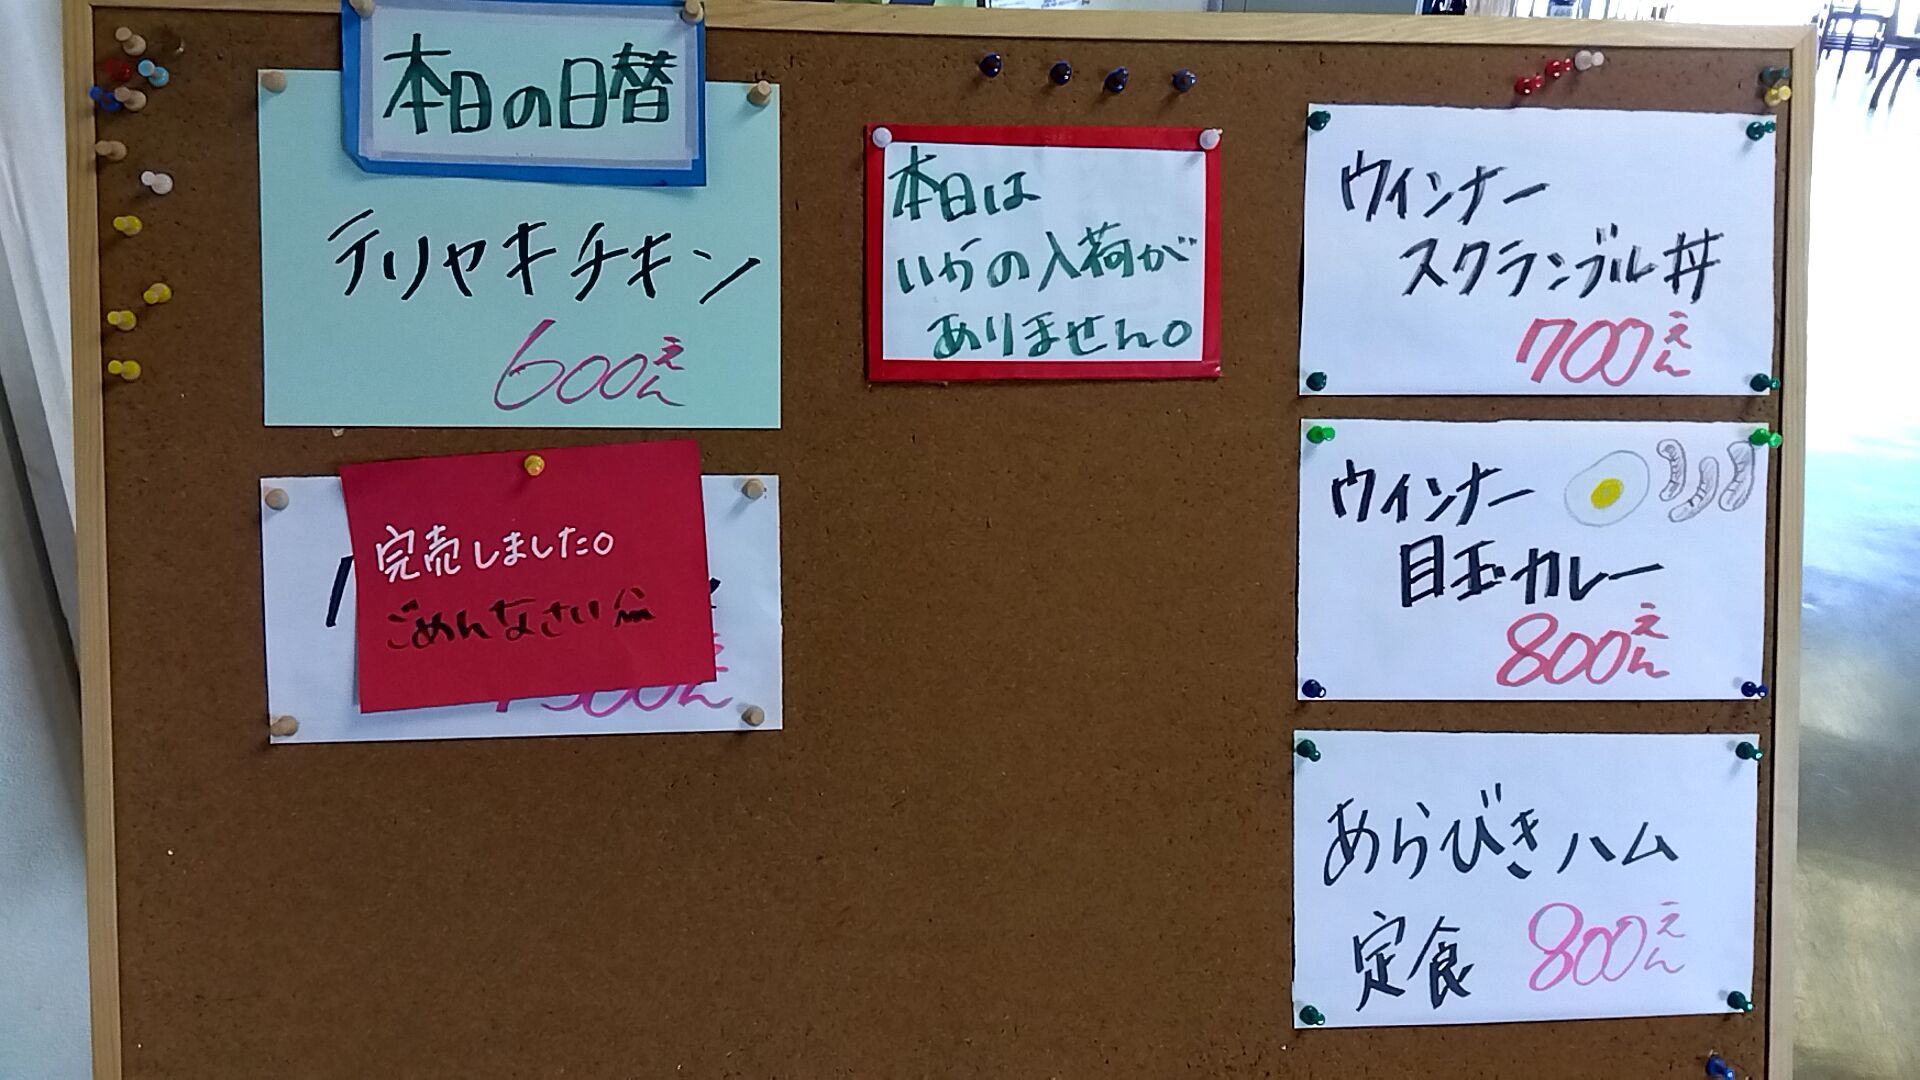 本日の日替
テリヤキチキン
600えん
完売しました。
ごめんなさい
本日は
いかの入荷が
ありません。
ウインナー
スクランブル丼
700えん
ウインナー
目玉カレー
800えん
あらびきハム
定食 800えん